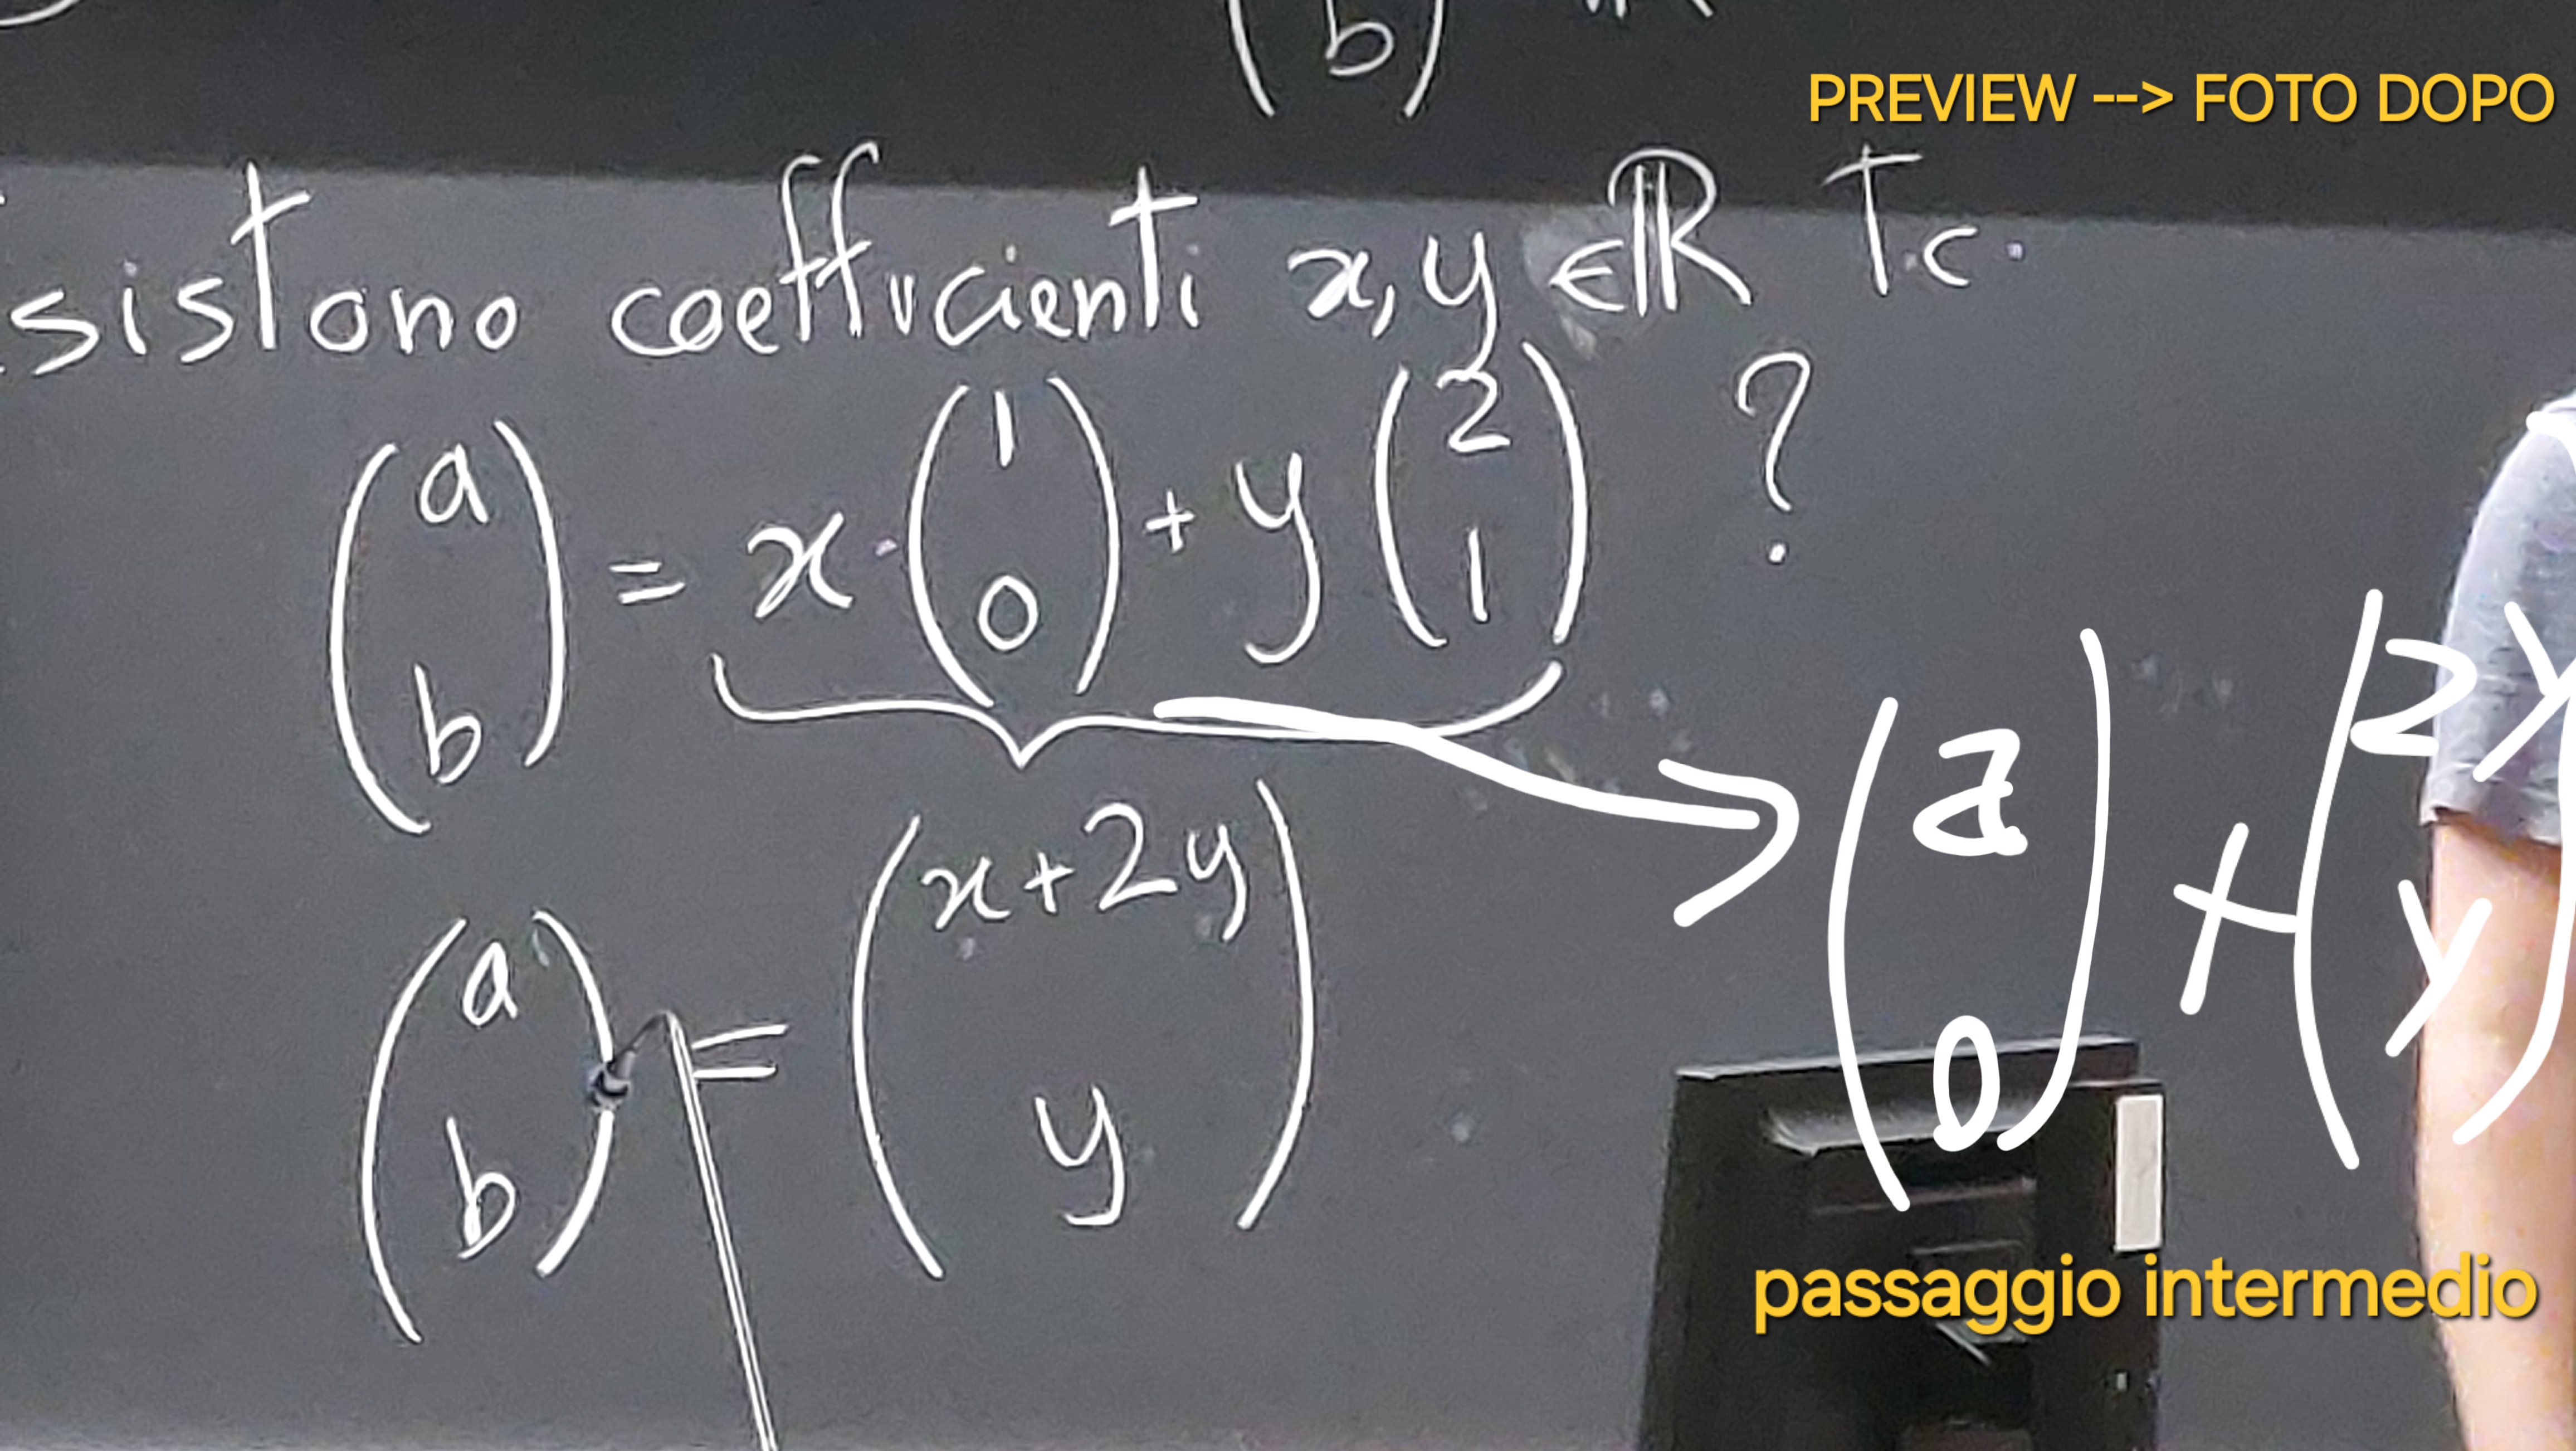 b)
PREVIEW --> FOTO DOPO
sistono coefficienti x, y ∈ ℝ T.c.
(a b) = x · (1 0) + y (2 1) ?
(a b) = (x+2y y)
(a 0) + (2y y)
passaggio intermedio